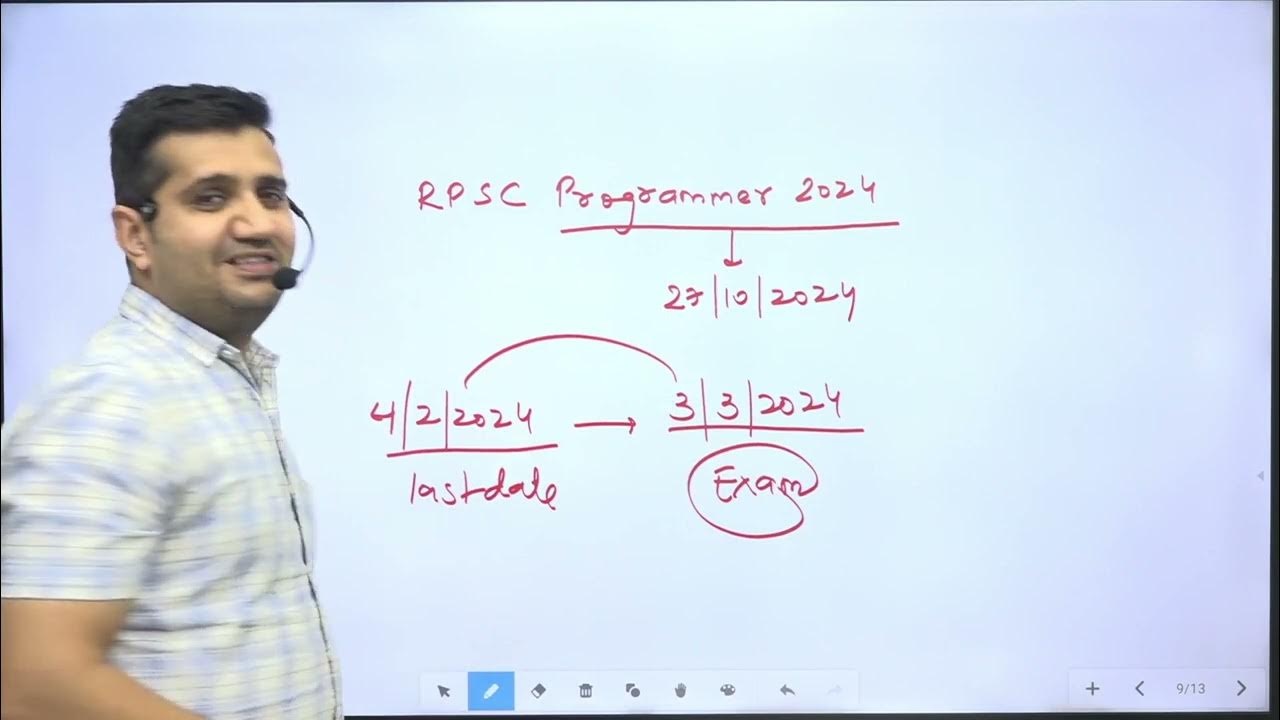 RPSC Programmer 2024
27|10|2024
4|2|2024 → 3|3|2024
lastdate Exam
9/13